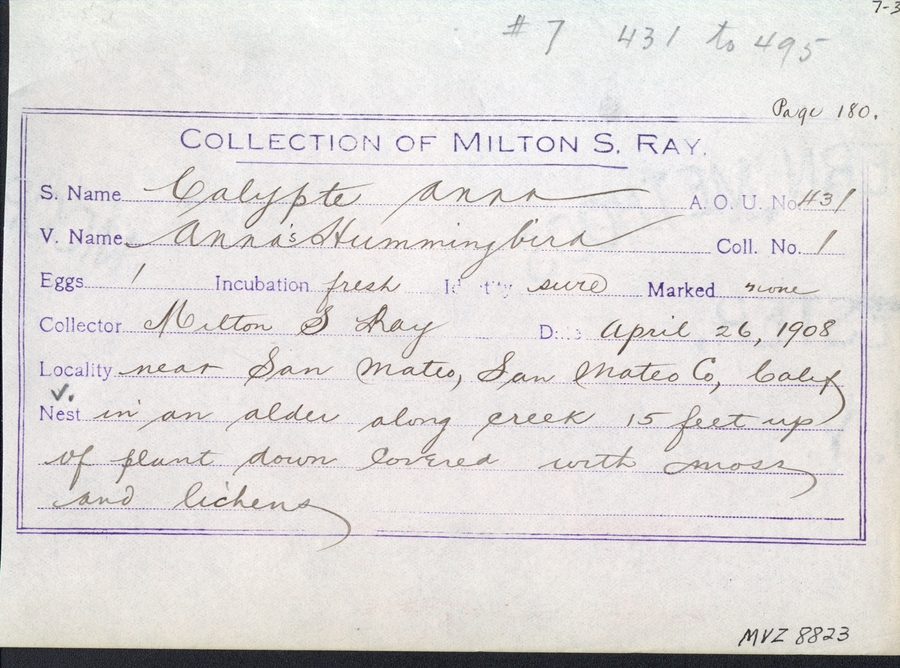 7-3
# 7 431 to 495
Page 180.
COLLECTION OF MILTON S. RAY.
S. Name Calypte anna A. O. U. No. 431
V. Name Anna's Hummingbird Coll. No. 1
Eggs 1 Incubation fresh Identity sure Marked none
Collector Milton S Ray Date April 26, 1908
Locality near San Mateo, San Mateo Co, Calif
v.
Nest in an alder along creek 15 feet up
of plant down covered with moss
and lichens
MVZ 8823